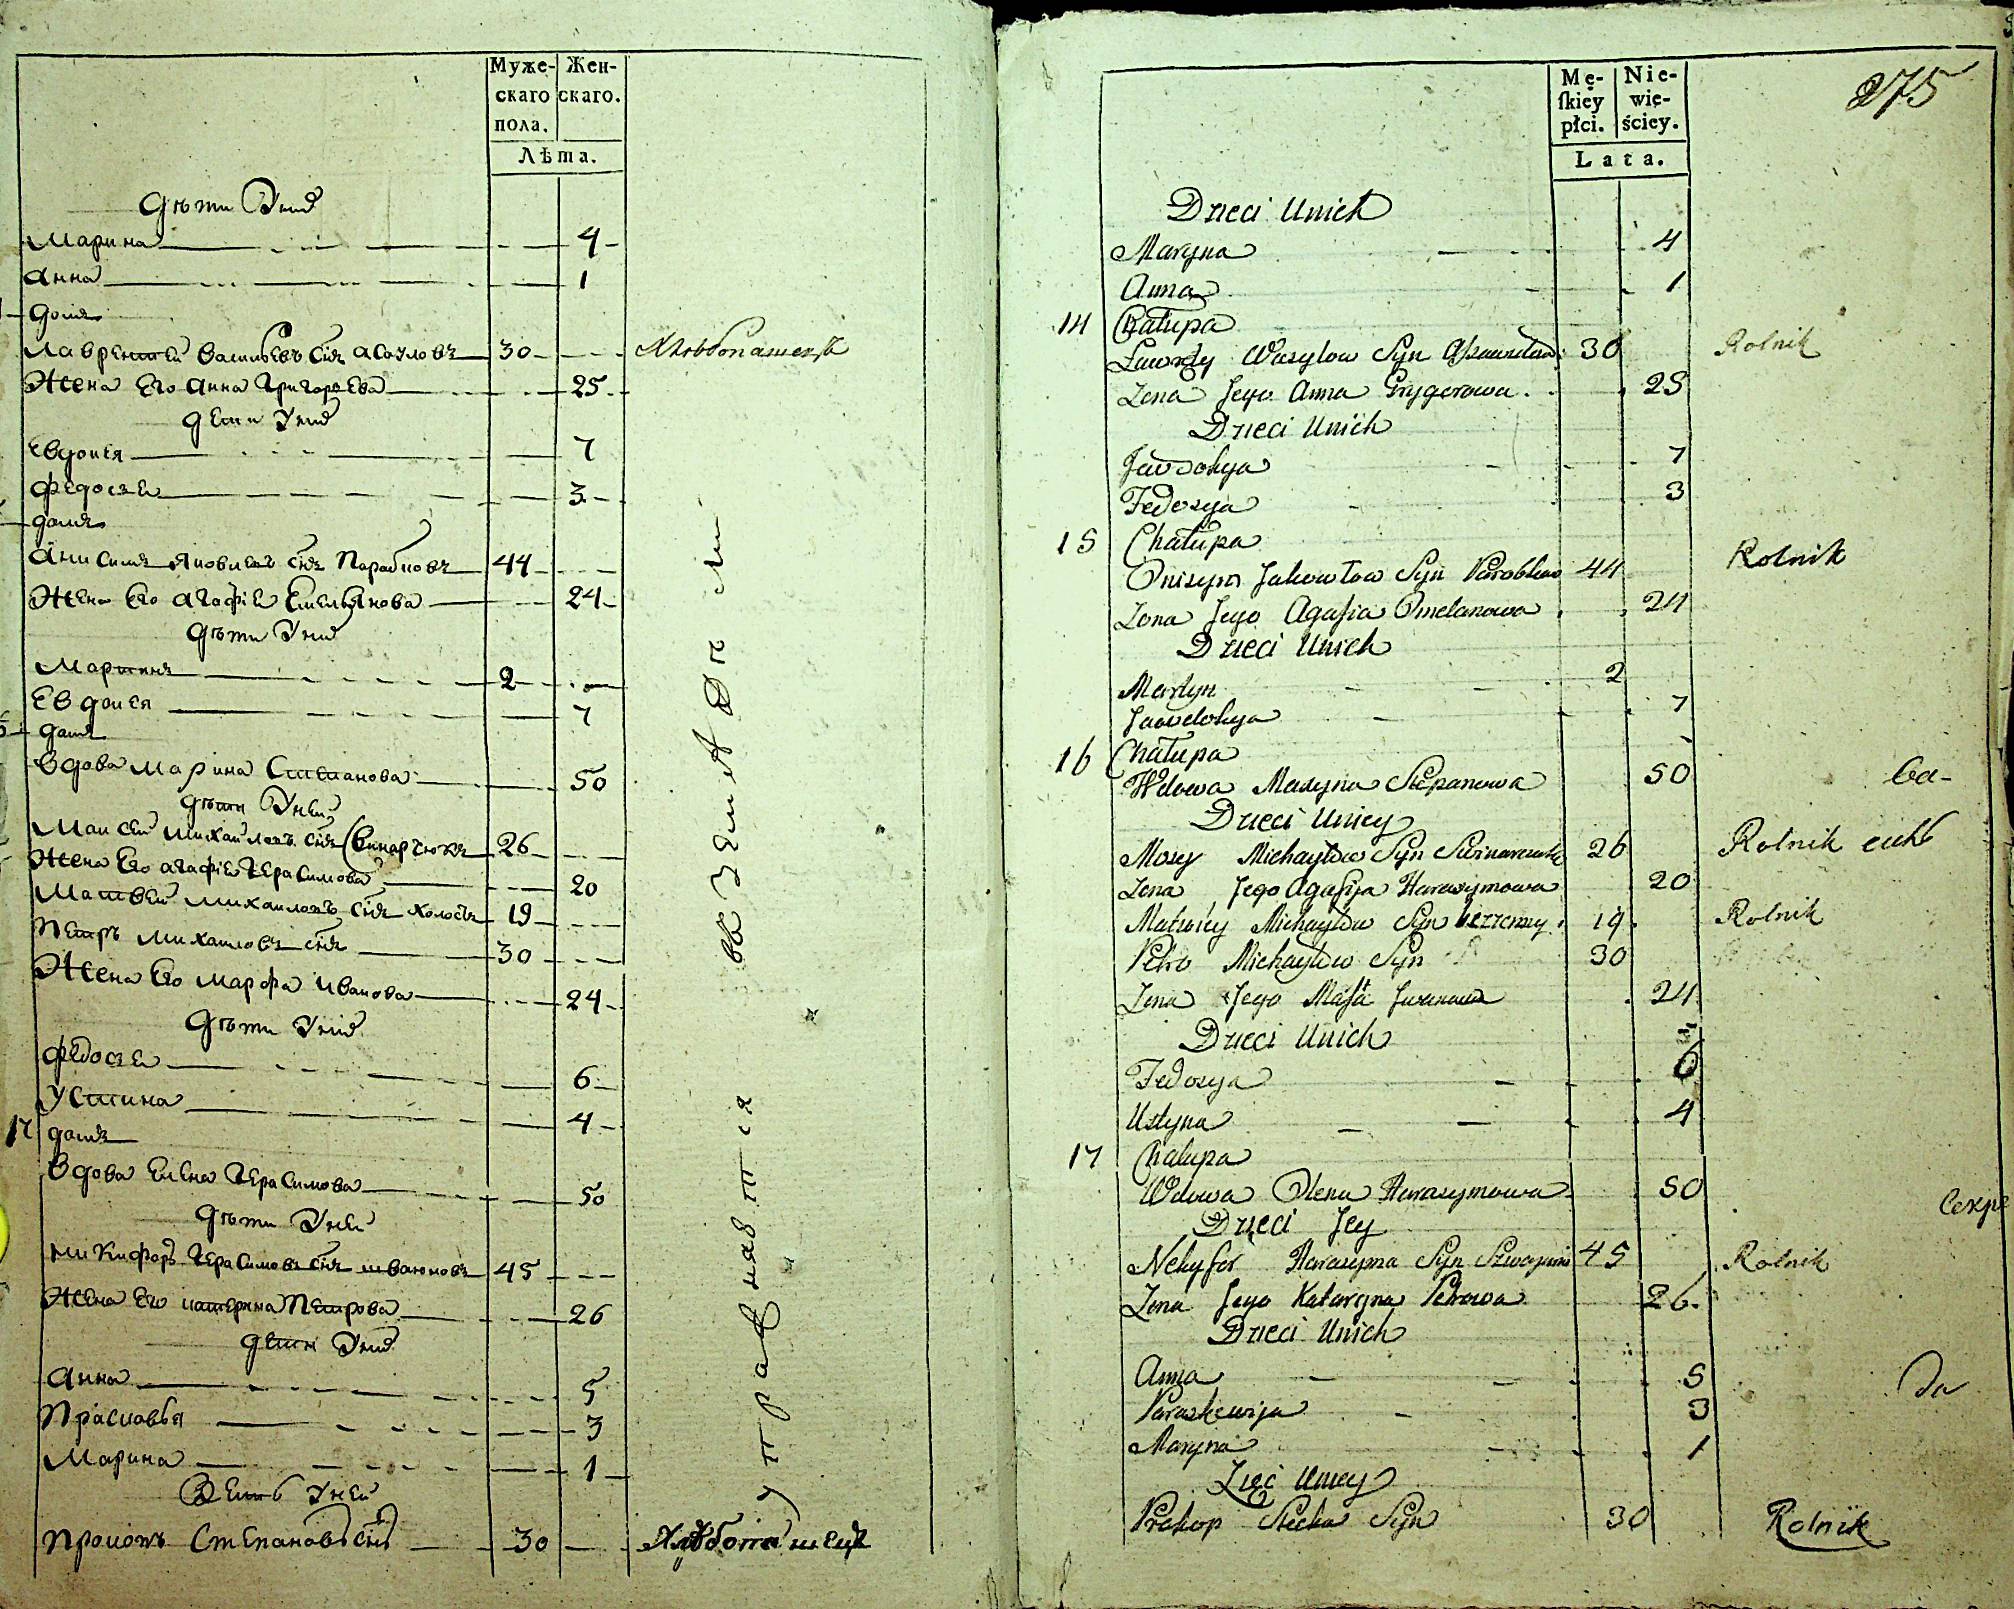 Муже-
скаго
пола.
Жен-
скаго.
Лѣта.
дѣти Униᵡ
Марина 4
Анна 1
домъ
Лаврентей Васильевъ снъ Асауловъ 30 Хлѣбопашецъ
Жена Его Анна Григорьева 25
дети Униᵡ
Евдокия 7
Федосея 3
домъ
Анисимъ Яковлевъ снъ Парабковъ 44
Жена Его Агафия Емельянова 24
дѣти Униᵡ
Мартинъ 2
Евдокия 7
домъ
Вдова Марина Степанова 50
дѣти Уней
Моисей Михайловъ снъ Винарчюкъ 26
Жена Его Агафия Герасимова 20
Матвей Михайловъ снъ холостъ 19
Петръ Михайловъ снъ 30
Жена Его Марфа Иванова 24
Дѣти Униᵡ
Федосея 6
Устина 4
17 домъ
Вдова Елена Герасимова 50
дѣти Уней
Никифоръ Герасимовъ снъ 45
Жена Его Катерина Петрова 26
дети Униᵡ
Анна 5
Прасковья 3
Марина 1
Зеть Уней
Прокопъ Степановъ снъ 30 Хлѣбопашецъ
275
Mę-
ſkiey
płci.
Nie-
wie-
ściey.
Lata.
Dzieci Unich
Maryna 4
Anna 1
14 Chałupa
Ławryn Wasylow Syn 30 Rolnik
Zona Jego Anna Grygorowa 25
Dzieci Unich
Jawdokya 7
Fedosya 3
15 Chałupa
Onisym Jakowłow Syn Parobkow 44 Rolnik
Zona Jego Agafia Omelanowa 24
Dzieci Unich
Martyn 2
Jawdokya 7
16 Chałupa
Wdowa Maryna Stepanowa 50 ва-
Dzieci Uniey
Mosy Michayłow Syn 26 Rolnik
Zona Jego Agafija Harasymowa 20
Matwiey Michayłow Syn bezzenny 19 Rolnik
Petro Michayłow Syn 30
Zona Jego Marfa Iwanowa 24
Dzieci Unich
Fedosya 6
Ustyna 4
17 Chałupa
Wdowa Olena Harasymowa 50 Секре
Dzieci Jey
Nekyfor Harasyma Syn 45 Rolnik
Zona Jego Katarzyna Petrowa 26
Dzieci Unich
Anna 5
Paraskewija 3
Maryna 1
Zięć Uniey
Prokop Stecka Syn 30 Rolnik